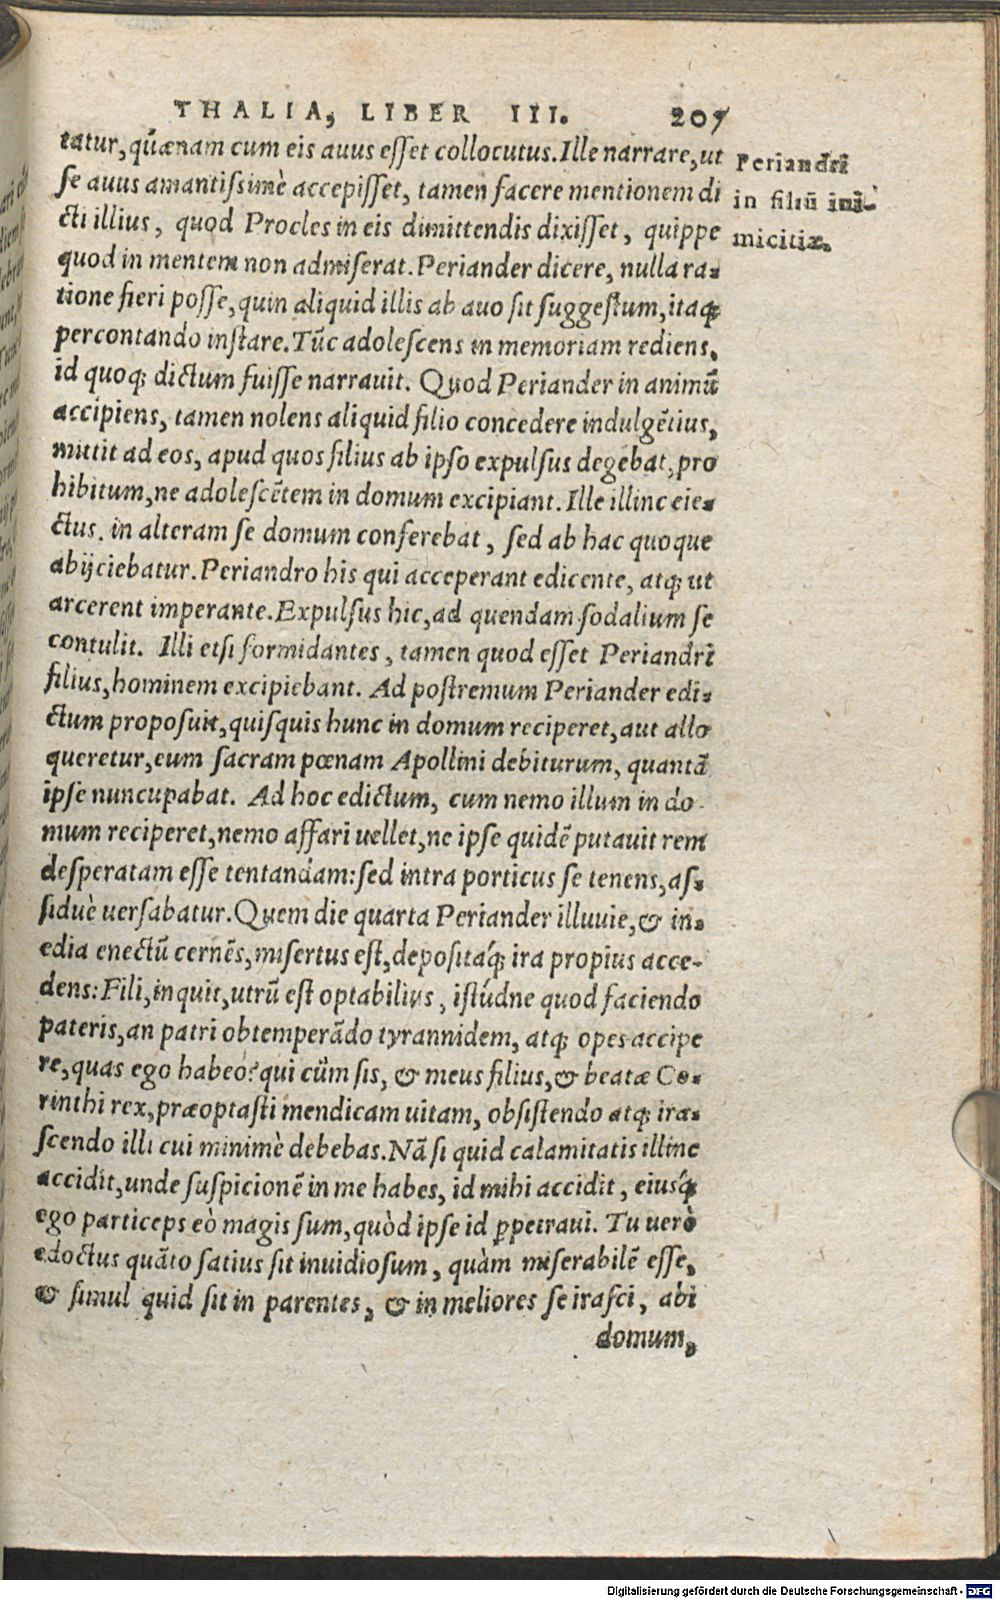 THALIA, LIBER III. 207
tatur, quænam cum eis auus esset collocutus. Ille narrare, ut
se auus amantissimè accepisset, tamen facere mentionem di
cti illius, quod Procles in eis dimittendis dixisset, quippe
quod in mentem non admiserat. Periander dicere, nulla ra-
tione fieri posse, quin aliquid illis ab auo sit suggestum, itaq;
percontando instare. Tũc adolescens in memoriam rediens,
id quoq; dictum fuisse narrauit. Quod Periander in animũ
accipiens, tamen nolens aliquid filio concedere indulgẽtius,
mittit ad eos, apud quos filius ab ipso expulsus degebat, pro
hibitum, ne adolescẽtem in domum excipiant. Ille illinc eie-
ctus, in alteram se domum conferebat, sed ab hac quoque
abijciebatur. Periandro his qui acceperant edicente, atq; ut
arcerent imperante. Expulsus hic, ad quendam sodalium se
contulit. Illi etsi formidantes, tamen quod esset Periandri
filius, hominem excipiebant. Ad postremum Periander edi-
ctum proposuit, quisquis hunc in domum reciperet, aut allo
queretur, eum sacram pœnam Apollini debiturum, quantã
ipse nuncupabat. Ad hoc edictum, cum nemo illum in do-
mum reciperet, nemo affari uellet, ne ipse quidẽ putauit rem
desperatam esse tentandam: sed intra porticus se tenens, as-
siduè uersabatur. Quem die quarta Periander illuuie, & in-
edia enectũ cernẽs, misertus est, depositáq; ira propius acce-
dens: Fili, inquit, utrũ est optabilius, istúdne quod faciendo
pateris, an patri obtemperãdo tyrannidem, atq; opes accipe
re, quas ego habeo? qui cũm sis, & meus filius, & beatæ Co-
rinthi rex, præoptasti mendicam uitam, obsistendo atq; ira-
scendo illi cui minimè debebas. Nã si quid calamitatis illinc
accidit, unde suspicionẽ in me habes, id mihi accidit, eiusq́;
ego particeps eò magis sum, quòd ipse id ꝑpetraui. Tu uerò
edoctus quãto satius sit inuidiosum, quàm miserabilẽ esse,
& simul quid sit in parentes, & in meliores se irasci, abi
domum,
Periandri
in filiũ ini-
micitiæ.
Digitalisierung gefördert durch die Deutsche Forschungsgemeinschaft - DFG